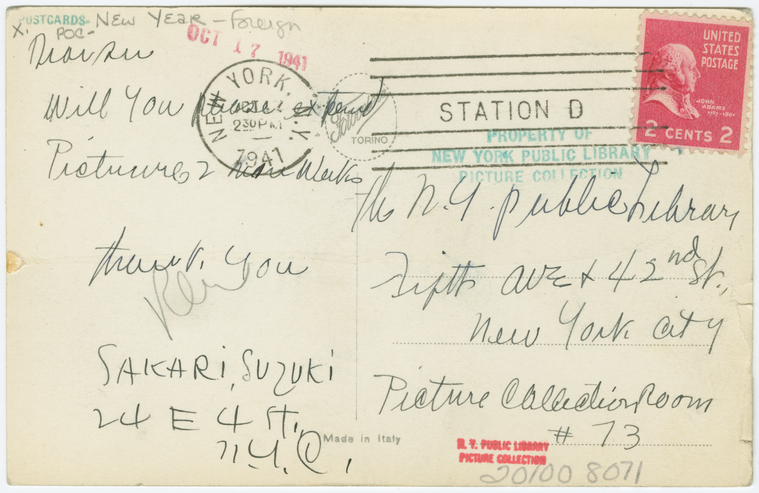 POSTCARDS- New Year - Foreign
X. POC-
OCT 17 1941
Dear Sir
Will You please extend
Pictures 2 more Weeks
Thank You
SAKARI, SUZUKI
24 E 4 St.,
N.Y.C.,
NEW YORK, N.Y.
2 30 PM
1941
TORINO
STATION D
UNITED
STATES
POSTAGE
JOHN
ADAMS
1797-1801
2 CENTS 2
PROPERTY OF
NEW YORK PUBLIC LIBRARY
PICTURE COLLECTION
The N.Y. Public Library
Fifth Ave & 42nd St.,
New York City
Picture Collection Room
# 73
Made in Italy
N. Y. PUBLIC LIBRARY
PICTURE COLLECTION
20100 8071